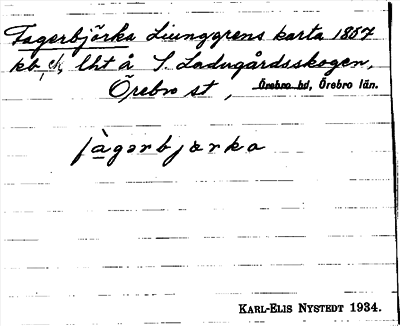 Fagerbjörka Ljunggrens karta 1857
kb, ek, lht å S. Ladugårdsskogen,
Örebro st, Örebro hd, Örebro län.
fàgərbjærka
KARL-ELIS NYSTEDT 1934.